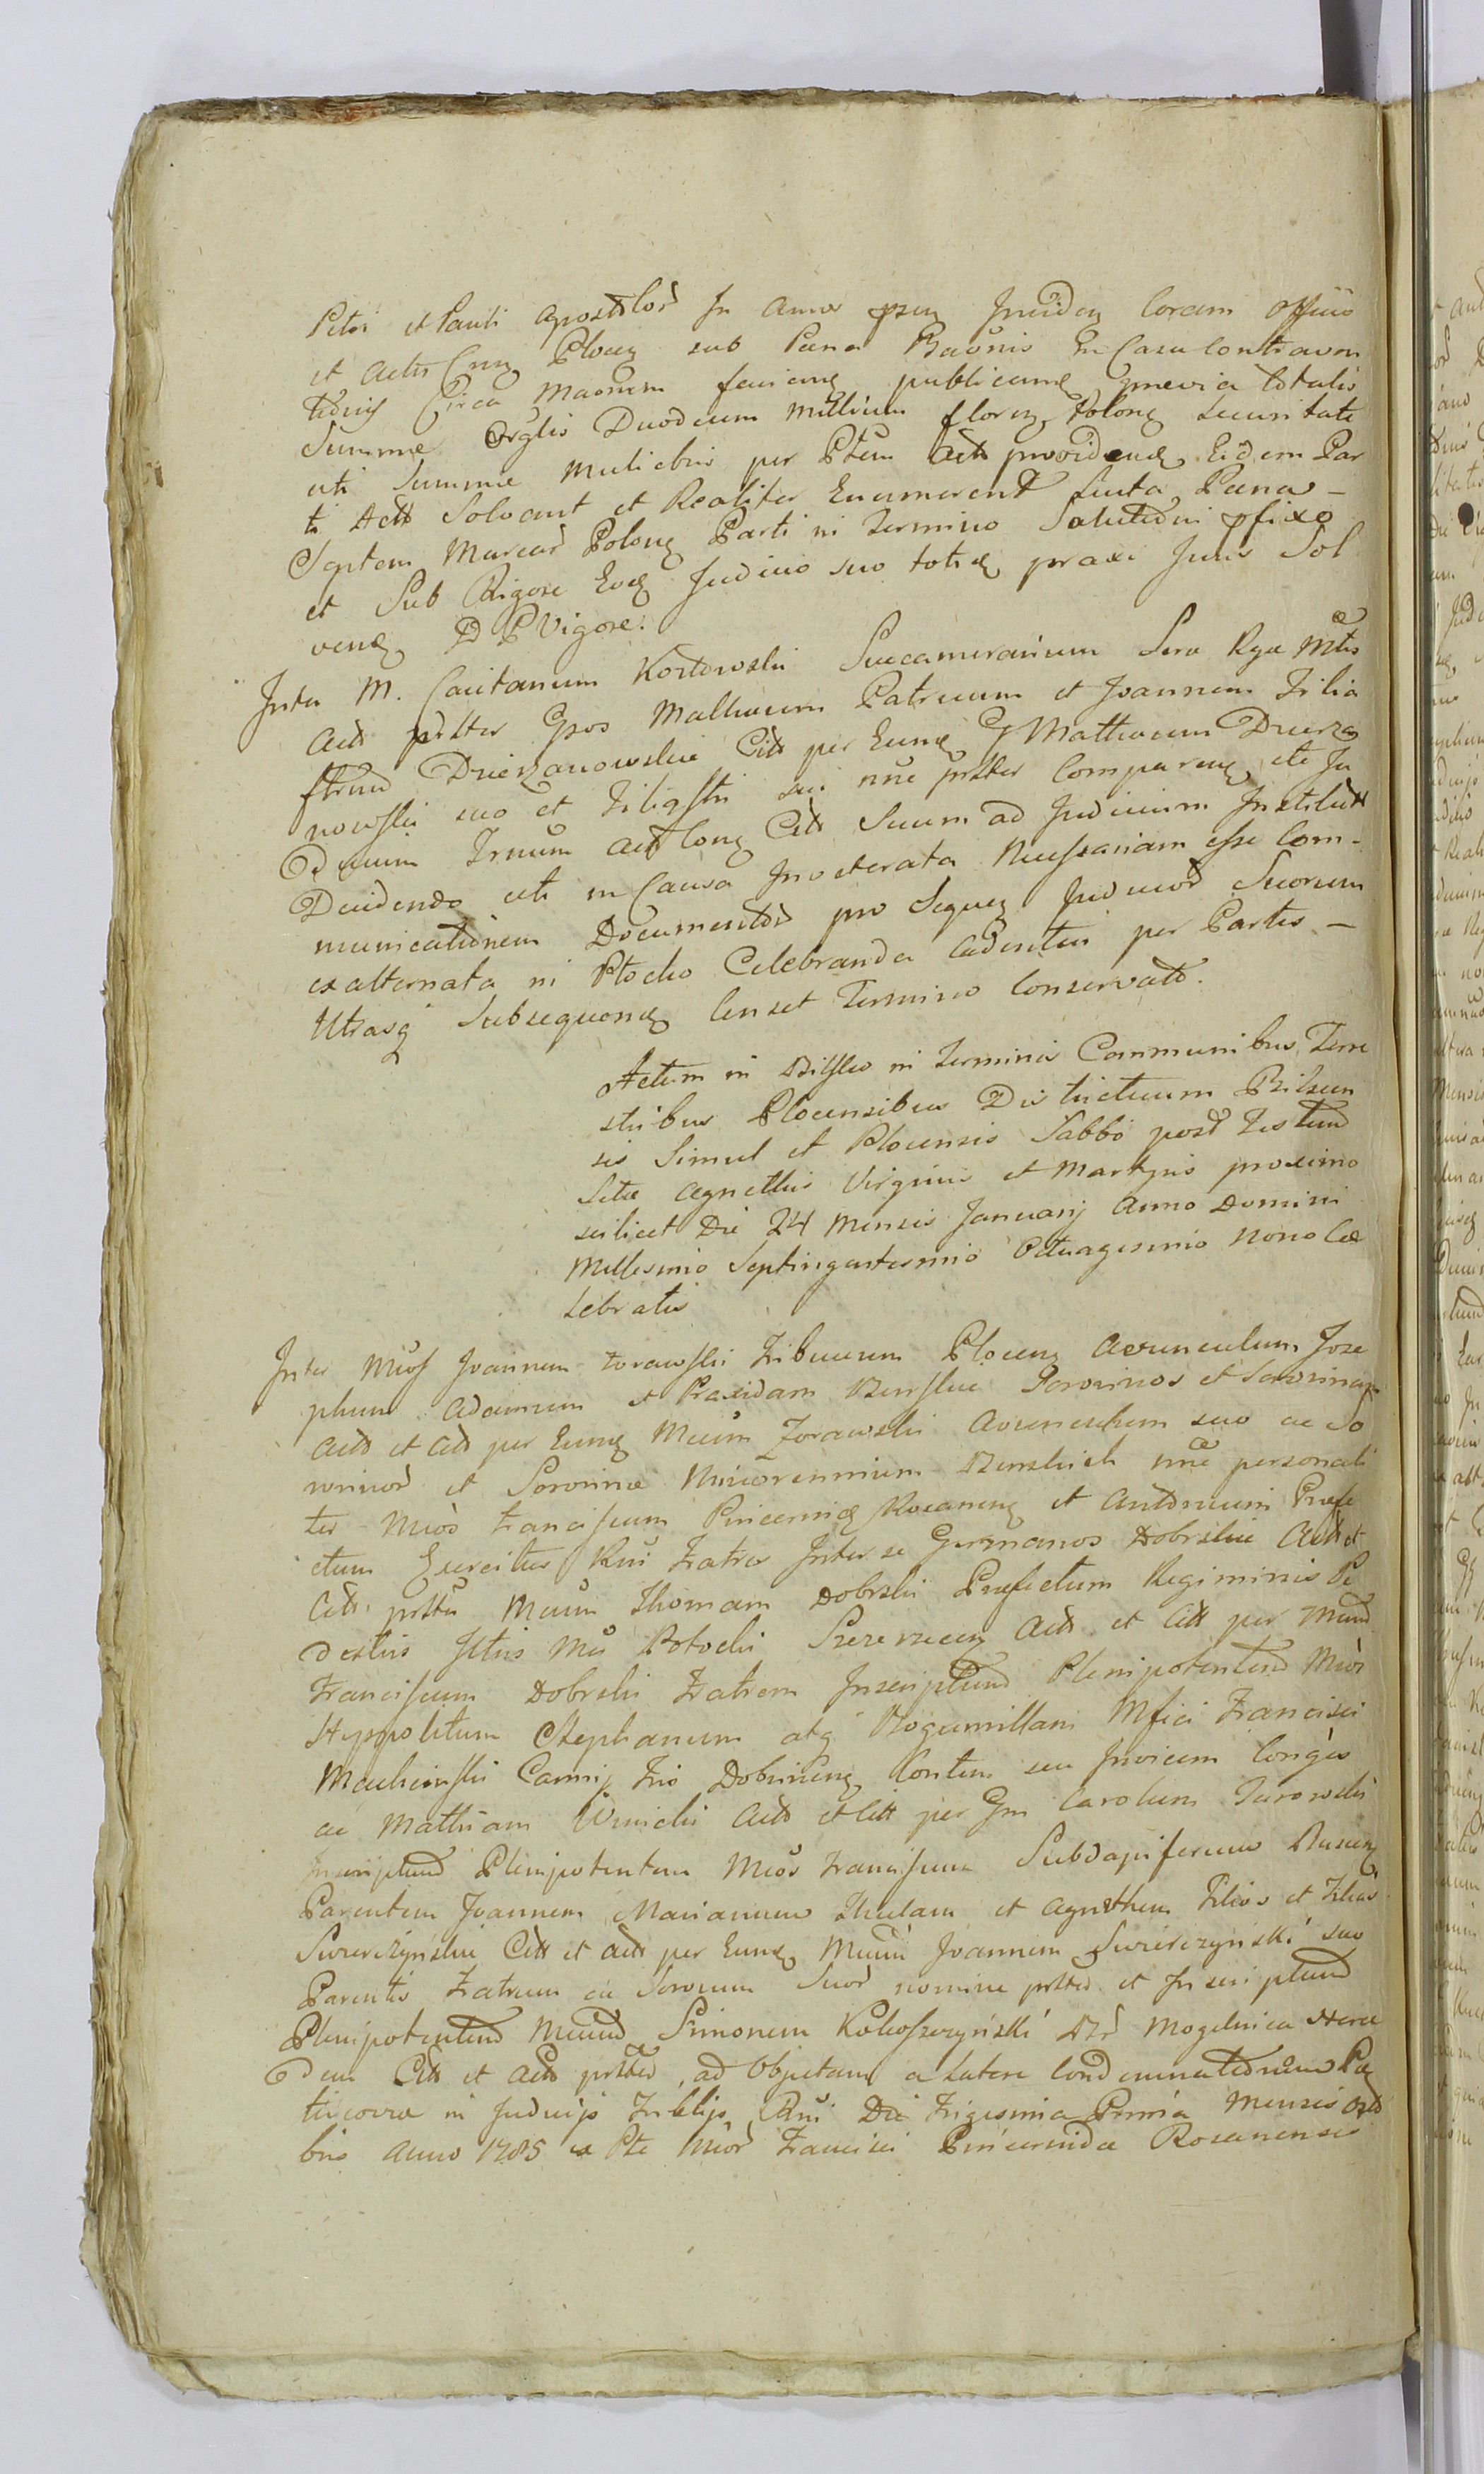 Petri et Pauli Apostlor In Anno psen Inciden Coram Officio
et Actis Cen Plocen sub Pena Baonis In Casu Contraven
tionis Circa Maonem faciene publicame previa totalis
Summe Orglis Duodecim Millium floren Polone Securitate
uti Summe Muliebris per Ptem Actt providene Eidem Par
ti Actt Solvant et Realiter Enumerent Luita Pena –
Septem Marcar Polone Parti in Termino Solutioni pfixo
et Sub Rigore Eoe Judicio suo totie praxi Juris Sol
vene D P Vigore.
Inter M. Caietanum Kozlowski Succamerarium Sere Rgæ Mtis
Actt psltter Gsos Mathaeum Patruum et Joannem Filia
strum Dzierzanowskie Citt per Eume G Mathaeum Dzierza
nowski suo et Filiastri sui nne psltter Comparene ete In
Decium Trnum Actt Cone Citt Suum ad Judicium Institutt
Decidendo uti in Causa Inveterata Necessariam esse Com-
municationem Documentor pro Seque Judicior Suorum
ex alternata in Plocko Celebranda Cadentia per Partes –
Utrasq Subsequene Censet Termino Conservato.
Actum in Bilsko in Terminis Communibus Terre
stribus Plocensibus Districtuum Bilscen
sis Simul et Plocensis Sabbo post Festum
Sctæ Agnethis Virginis et Martyris proximo
scilicet Die 24 Mensis Januarij Anno Domini
Millesimo Septingentesimo Octuagesimo Nono Ce
lebratis
Inter Mios Joannem Zorawski Tribunum Plocene Avunculum Jose
phum Adamum et Praxidam Bienskie Sororinos et Sororinam
Actt et Citt per Eume Mcum Zorawski Avunculum suo ac So
rorinor et Sororinæ Minorennium Bienskich nne personali
ter Mios Franciscum Pincernide Rozanene et Antonium Prefe
ctum Exercitus Rni Fratres Inter se Germanos Dobrskie Actt et
Citt psltte Mcum Thomam Dobrski Prefectum Regiminis Pe
destris Illtris Mci Potocki Szczerzecen Actt et Citt per Mcum
Franciscum Dobrski Fratrem Inscriptum Plenipotentem Mios
Hyppolitum Stephanum atq Bogumillam Mfici Francisci
Machcinski Camrij Tris Dobrinene Contem seu Invicem Conges
ac Mathiam Winicki Actt et Citt per Gm Carolum Turowski
Inscriptum Plenipotentem Mios Franciscum Subdapiferum Buscen
Parentem Joannem Marianum Theclam et Agnethem Filios et Filias
Swierczynskie Citt et Actt per Eume Mcum Joannem Swierczynski suo
Parentis Fratrum ac Sororum Suor nomine psltter et Inscriptum
Plenipotentem Mcum Simonem Kokoszczynski Bor Mogelnica Here
dem Citt et Actt psltter, ad Objectam a Latere Condemnationem Pe
tricoviæ in Judicijs Trblijs Rni Die Trigesima Prima Mensis Octo
bris Anno 1785 ex Pte Mior Francisci Pincernidæ Rozanensis